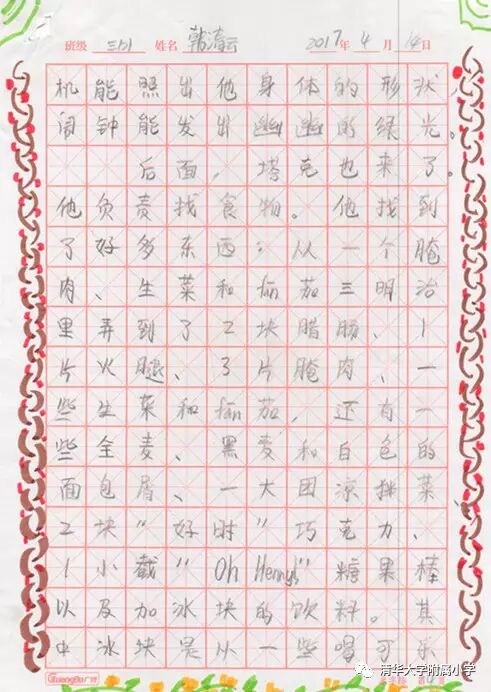 班级 三(5) 姓名 韩清云 2017年 4 月 14日
机能照出他身体的形状
闹钟能发出幽幽的绿光。
后面，塔克也来了。
他负责找食物。他找到
了好多东西：从一个腌
肉、生菜和fan茄三明治
里弄到了2块腊肠、1
片火腿、3片腌肉、一
些生菜和fan茄，还有一
些全麦、黑麦和白色的
面包屑、一大团凉拌菜
2块“好时”巧克力、
1小截“Oh Henry!”糖果棒
以及加冰块的饮料。其
中冰块是从一些喝可乐
GuangBo广博
清华大学附属小学